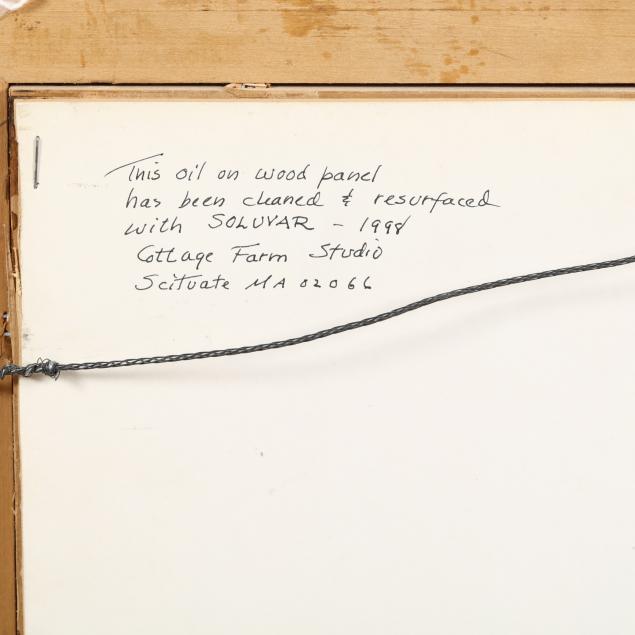 This oil on wood panel
has been cleaned & resurfaced
with SOLUVAR - 1998
Cottage Farm Studio
Scituate MA 02066